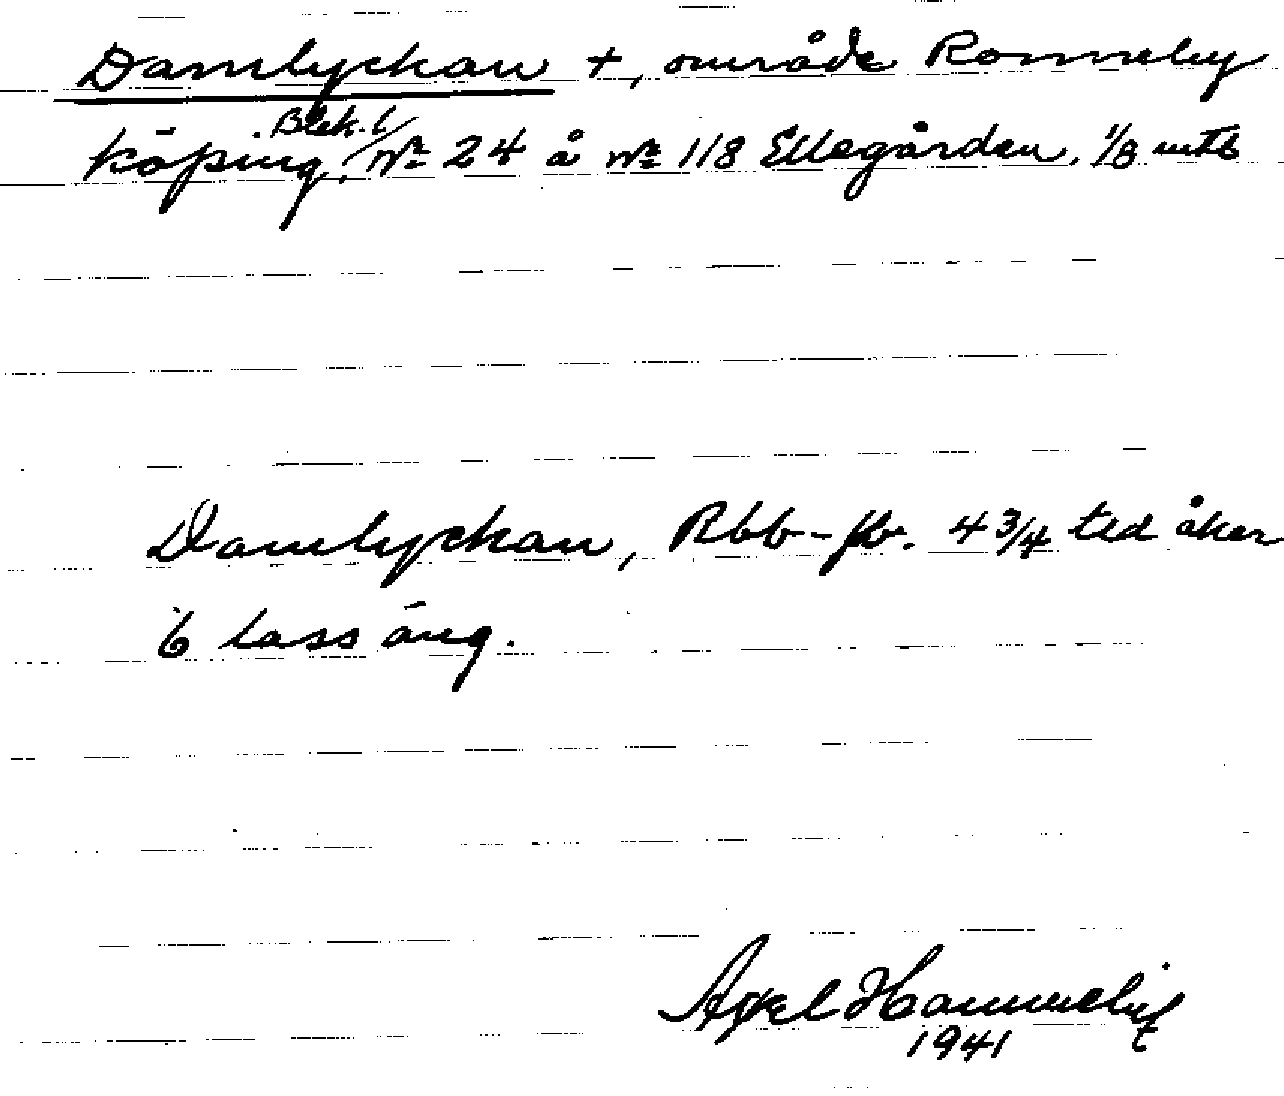 Damlyckan +, område Ronneby
Blek. l
köping, Nº 24 å Nº 118 Ellegården, 1/8 mtl
Damlyckan, Rbb-jb. 4 3/4 tld åker
6 lass äng.
Axel
1941